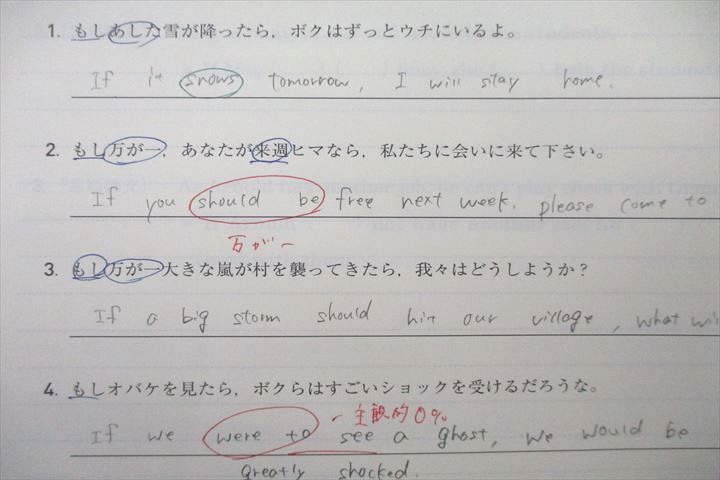 1. もしあした雪が降ったら，ボクはずっとウチにいるよ。
If it snows tomorrow, I will stay home.
2. もし万が一，あなたが来週ヒマなら，私たちに会いに来て下さい。
If you should be free next week, please come to
万が一
3. もし万が一大きな嵐が村を襲ってきたら，我々はどうしようか？
If a big storm should hit our village, what wi
4. もしオバケを見たら，ボクらはすごいショックを受けるだろうな。
主観的0%
If we were to see a ghost, we would be
greatly shocked.